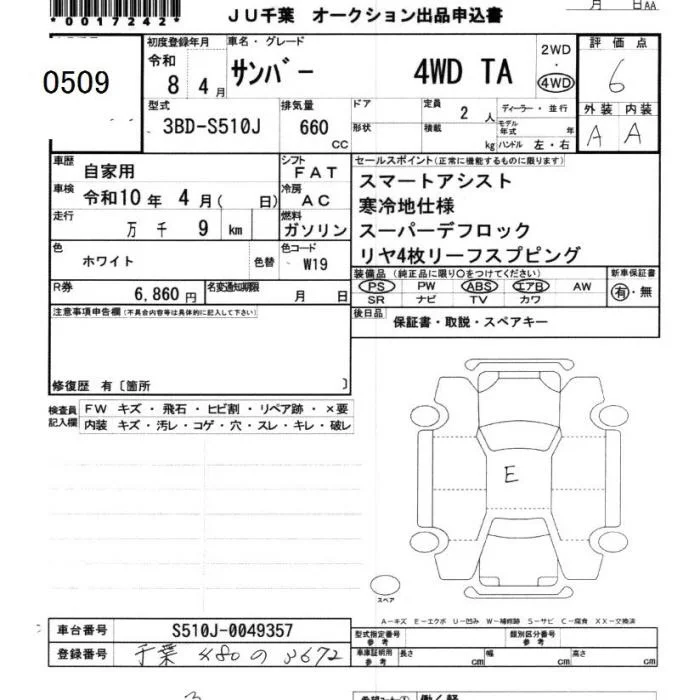 *0017242*
月 日AA
JU千葉 オークション出品申込書
0509
初度登録年月
令和
8 4月
車名・グレード
サンバー 4WD TA
2WD
・
4WD
評価点
6
型式
3BD-S510J
排気量
660 CC
ドア
形状
定員 2 人
積載 kg
ディーラー・並行
モデル年式 年
ハンドル 左・右
外装 内装
A A
車歴
自家用
車検 令和10年 4月( 日)
走行 万 千 9 km
色
ホワイト 色替
シフト
FAT
冷房
AC
燃料
ガソリン
色コード
W19
セールスポイント(正常に機能するものに限ります)
スマートアシスト
寒冷地仕様
スーパーデフロック
リヤ4枚リーフスプピング
R券 6,860円
名変通知期限 月 日
装備品 (純正品に限り○をつけてください)
PS PW ABS エアB AW
SR ナビ TV カワ
新車保証書
有・無
後日品
保証書・取説・スペアキー
注意事項申告欄(不具合内容等は具体的に記入して下さい)
修復歴 有〔箇所 〕
検査員記入欄
FW キズ・飛石・ヒビ割・リペア跡・×要
内装 キズ・汚レ・コゲ・穴・スレ・キレ・破レ
E
スペア
A−キズ E−エクボ U−凹み W−補修跡 S−サビ C−腐食 XX−交換済
車台番号 S510J-0049357
登録番号 千葉 480 の 3672
型式指定番号 参考
類別区分番号 参考
車庫証明用 参考 長さ cm 幅 cm 高さ cm